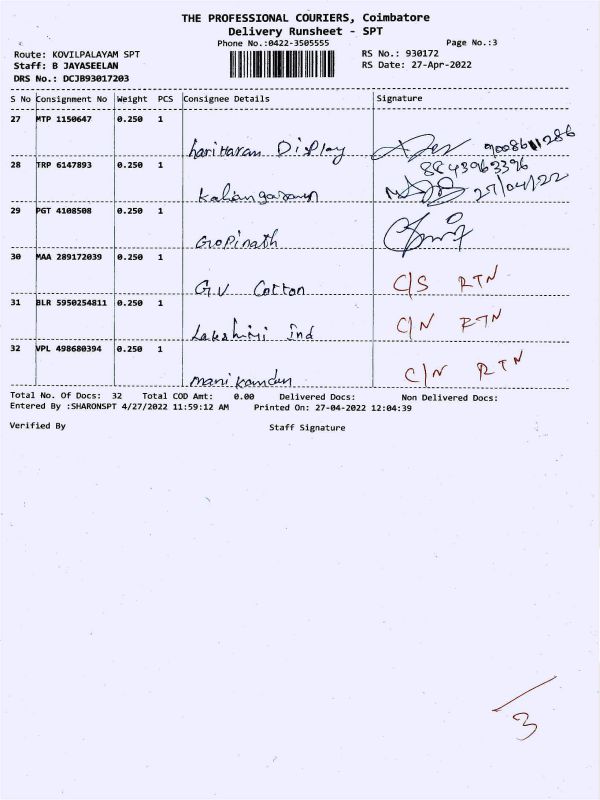 THE PROFESSIONAL COURIERS, Coimbatore
Delivery Runsheet - SPT
Phone No.:0422-3505555 Page No.:3
Route: KOVILPALAYAM SPT RS No.: 930172
Staff: B JAYASEELAN RS Date: 27-Apr-2022
DRS No.: DCJB93017203
S No Consignment No Weight PCS Consignee Details Signature
27 MTP 1150647 0.250 1
hariharan Display
28 TRP 6147893 0.250 1 8843963396
27/04/22
29 PGT 4108508 0.250 1
Gopinath
30 MAA 289172039 0.250 1
G.V Cotton C/S RTN
31 BLR 5950254811 0.250 1
Lakshmi Ind C/N RTN
32 VPL 498680394 0.250 1
manikandan C/N RTN
Total No. Of Docs: 32 Total COD Amt: 0.00 Delivered Docs: Non Delivered Docs:
Entered By :SHARONSPT 4/27/2022 11:59:12 AM Printed On: 27-04-2022 12:04:39
Verified By Staff Signature
3